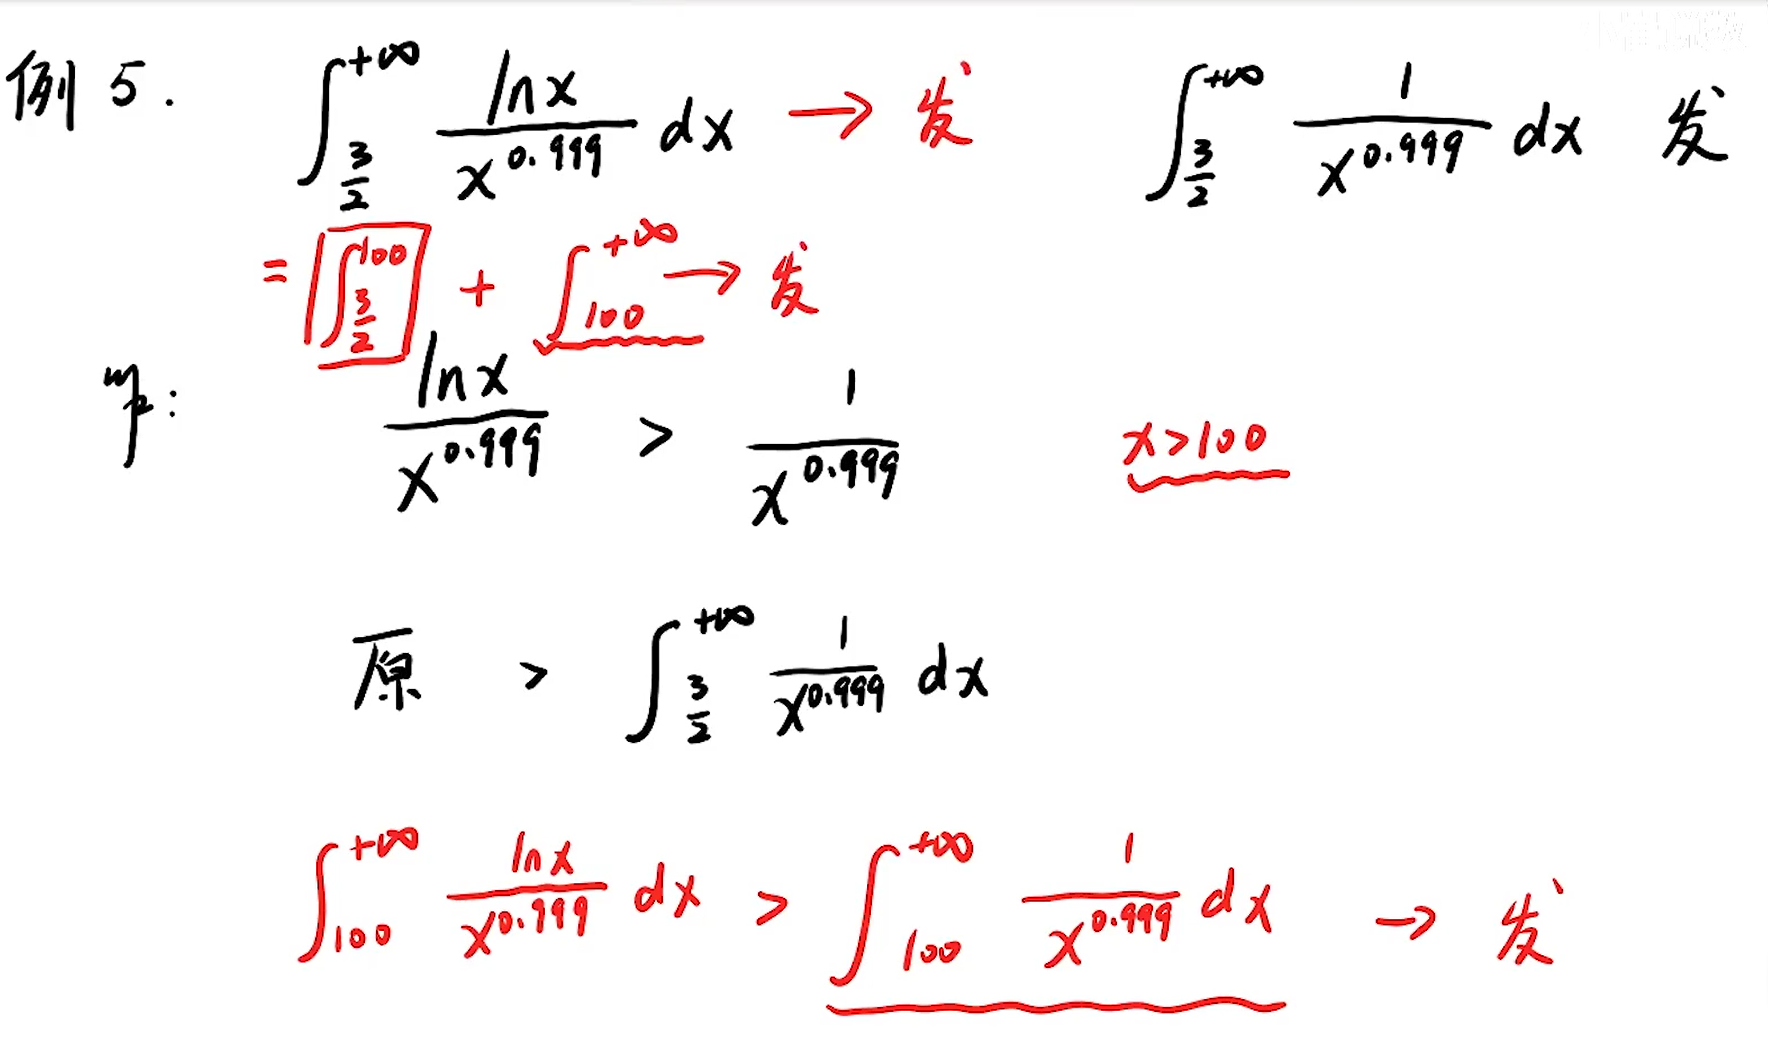 例 5. ∫_{3/2}^{+∞} lnx / x^{0.999} dx → 发 ∫_{3/2}^{+∞} 1 / x^{0.999} dx 发
= ∫_{3/2}^{100} + ∫_{100}^{+∞} → 发
lnx / x^{0.999} > 1 / x^{0.999} x>100
原 > ∫_{3/2}^{+∞} 1 / x^{0.999} dx
∫_{100}^{+∞} lnx / x^{0.999} dx > ∫_{100}^{+∞} 1 / x^{0.999} dx → 发